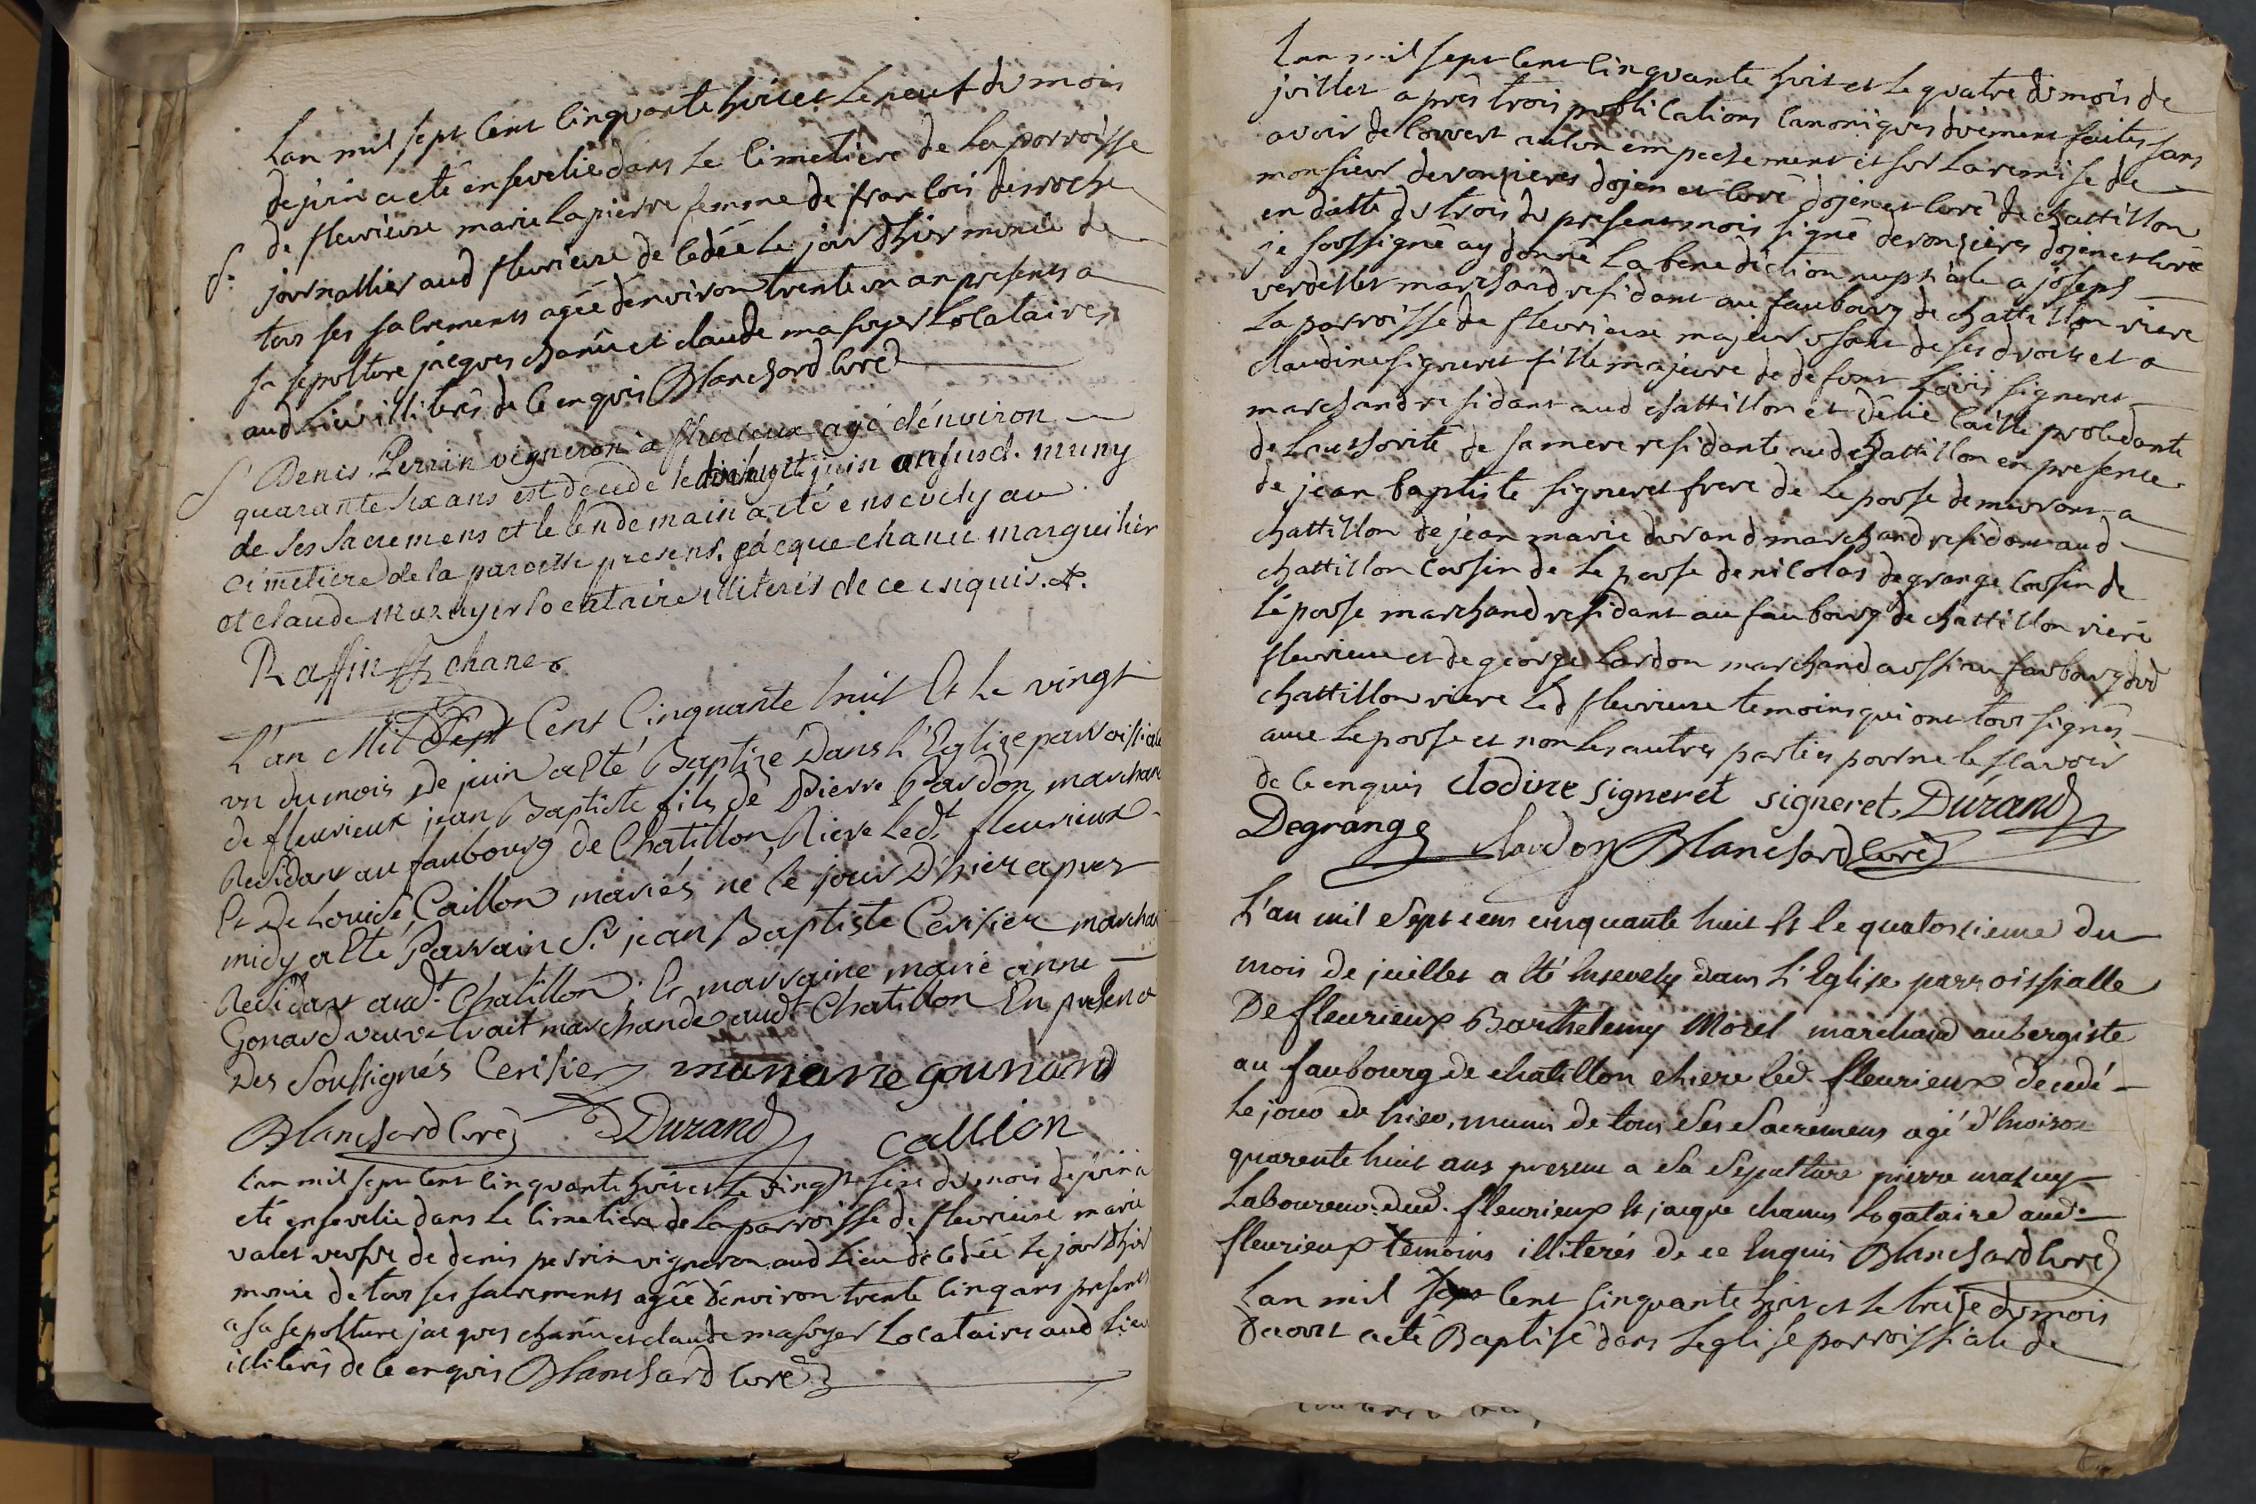 Lan mil sept cent cinquante huit et le neuf du mois
de juin a eté ensevelie dans le cimetiere de la parroisse
de fleurieux marie lapierre femme de francois desroche
S. journallier aud fleurieux decedée le jour dhier munie de
tous ses sacrements agée denviron trente un an presents a
sa sepolture jacques chanu et claude masoyer locataires
aud lieu illiterés de ce enquis Blanchard curé
S Denis Perrin vigneron a fleurieux agé d'environ
quarante six ans est decede le dixhuyt juin an susd. muny
de ses sacremens et le lendemain a eté ensevely au
cimetiere de la paroisse presens jacque chanu marguilier
et claude mazuyer locataire illiterés de ce enquis. &.
Raffin chane
L'an Mil Sept Cent Cinquante huit Et Le vingt
un du mois de juin a Eté Baptizé Dans L'Eglize parroissiale
de fleurieux jean Baptiste fils de Pierre Lardon marchand
Residant au faubourg de Chatillon Riere Ledt fleurieux
Et De Louise Caillon mariés né le jour D'hier apres
midy a Eté Parrain Sr jean Baptiste Cerisier marchand
Residant audt Chatillon Et marraine marie anne
Gonard veuve trait marchande audt Chatillon En presence
Des Soussignés Cerisier marianne gounand
Blanchard curé Durand callion
Lan mil sept cent cinquante huit et le vingt sixe du mois de juin a
eté ensevelie dans le cimetiere de la parroisse de fleurieux marie
valet veufve de denis perrin vigneron aud lieu decedée le jour dhier
munie de tous ses sacrements agée denviron trente cinq ans presents
a sa sepolture jacques chanu et claude masoyer locataires aud lieu
illiterés de ce enquis Blanchard curé
Lan mil sept cent cinquante huit et le quatre du mois de
juillet après trois publications canoniques duement faites sans
avoir decouvert aucun empechement et sur la remise de
monsieur deronzieres dojen et curé dojen et curé de chattillon
en datte du trois du present mois signé deronzieres dojen et curé
je soussigné ay donné la benediction nuptiale a joseph
verdellet marchand residant au faubourg de chattillon riere
la parroisse de fleurieux majeur usant de ses droits et a
claudine signeret fille majeure de defunt Louis signeret
marchand residant aud chattillon et d'elie caille procedante
de l'authorité de sa mere residante aud chattillon en presence
de jean baptiste signeret frere de lepouse demeurant a
chattillon de jean marie durand marchand residant aud
chattillon cousin de lepouse de nicolas degrange cousin de
l'epouse marchand residant au faubourg de chattillon riere
fleurieux et de george Lardon marchand aussi au faubourg dud
chattillon riere led fleurieux temoins qui ont tous signés
avec lepouse et non les autres parties pour ne le scavoir
de ce enquis clodine signeret signeret. Durand
Degrange lardon Blanchard curé
L'an mil sept cens cinquante huit Et le quatorzieme du
mois de juillet a Eté Ensevely dans L'Eglise parroissialle
De fleurieux Barthelemy Morel marchand aubergiste
au faubourg de chatillon riere led. fleurieux decedé
le jour de hier, muni de tous Ses Sacremens agé d'Environ
quarente huit ans present a Sa Sepulture pierre mazuy
Laboureur aud. fleurieux Et jacque chanus Logataire aud.
fleurieux temoins illiterés de ce Enquis Blanchard curé
Lan mil sept cent cinquante huit et le treise du mois
daoust a eté Baptisé dans leglise parroissiale de